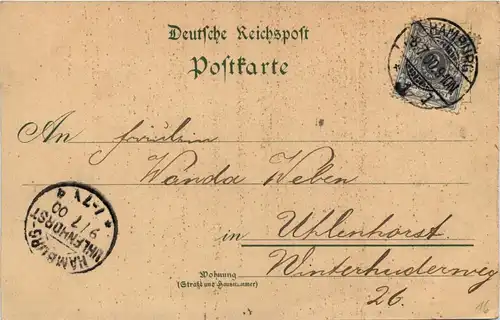 Deutsche Reichspost
Postkarte
HAMBURG
8/7 00
An Fräulein
Wanda Weben
in Uhlenhorst
Winterhuderweg
26.
Wohnung
(Straße und Hausnummer)
HAMBURG-
UHLENHORST
9/7 00
16